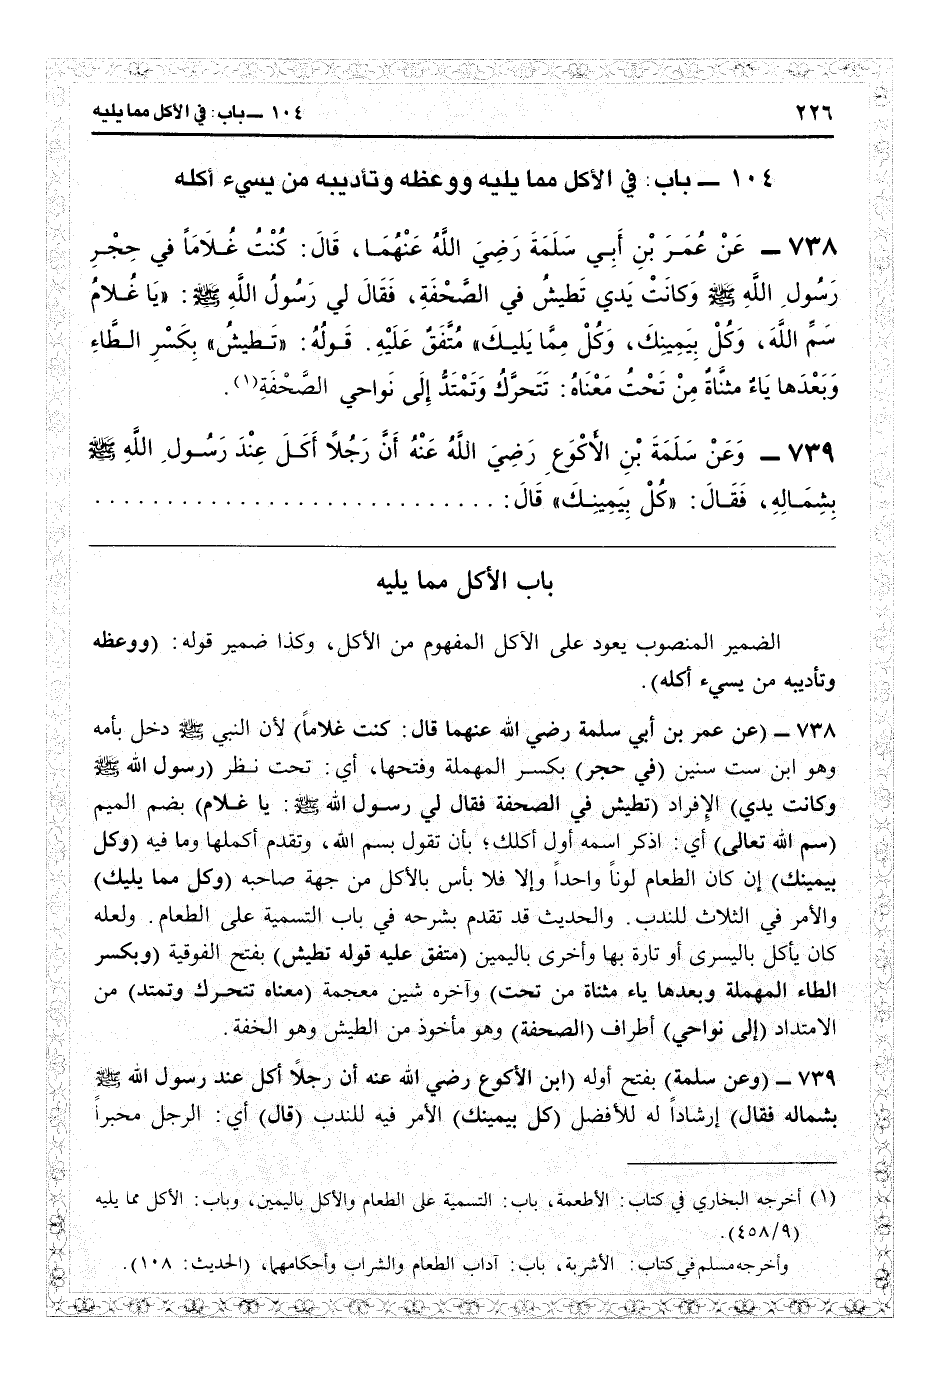 ٢٢٦
١٠٤ ـ باب: في الأكل مما يليه
١٠٤ ـ باب: في الأكل مما يليه ووعظه وتأديبه من يسيء أكله
٧٣٨ ـ عَنْ عُمَرَ بْنِ أَبِي سَلَمَةَ رَضِيَ اللَّهُ عَنْهُمَا، قَالَ: كُنْتُ غُلَامَاً في حِجْرِ
رَسُولِ اللَّهِ ﷺ وَكَانَتْ يَدي تَطيشُ في الصَّحْفَةِ، فَقَالَ لي رَسُولُ اللَّهِ ﷺ: «يَا غُلامُ
سَمِّ اللَّهَ، وَكُلْ بِيَمِينِكَ، وَكُلْ مِمَّا يَليكَ» مُتَّفَقٌ عَلَيْهِ. قَوْلُهُ: «تَطيشُ» بِكَسْرِ الطَّاءِ
وَبَعْدَها يَاءٌ مثنَّاةٌ مِنْ تَحْتُ مَعْنَاهُ: تَتَحرَّكُ وَتَمْتَدُّ إِلَى نَواحي الصَّحْفَةِ(١).
٧٣٩ ـ وَعَنْ سَلَمَةَ بْنِ الأَكْوَعِ رَضِيَ اللَّهُ عَنْهُ أَنَّ رَجُلاً أَكَلَ عِنْدَ رَسُولِ اللَّهِ ﷺ
بِشِمَالِهِ، فَقَالَ: «كُلْ بِيَمِينِكَ» قَالَ: . . . . . . . . . . . . . . . . . . . . . . . . . . . .
باب الأكل مما يليه
الضمير المنصوب يعود على الأكل المفهوم من الأكل، وكذا ضمير قوله: (ووعظه
وتأديبه من يسيء أكله).
٧٣٨ ـ (عن عمر بن أبي سلمة رضي الله عنهما قال: كنت غلاماً) لأن النبي ﷺ دخل بأمه
وهو ابن ست سنين (في حجر) بكسر المهملة وفتحها، أي: تحت نظر (رسول الله ﷺ
وكانت يدي) الإفراد (تطيش في الصحفة فقال لي رسول الله ﷺ: يا غلام) بضم الميم
(سم الله تعالى) أي: اذكر اسمه أول أكلك؛ بأن تقول بسم الله، وتقدم أكملها وما فيه (وكل
بيمينك) إن كان الطعام لوناً واحداً وإلا فلا بأس بالأكل من جهة صاحبه (وكل مما يليك)
والأمر في الثلاث للندب. والحديث قد تقدم بشرحه في باب التسمية على الطعام. ولعله
كان يأكل باليسرى أو تارة بها وأخرى باليمين (متفق عليه قوله تطيش) بفتح الفوقية (وبكسر
الطاء المهملة وبعدها ياء مثناة من تحت) وآخره شين معجمة (معناه تتحرك وتمتد) من
الامتداد (إلى نواحي) أطراف (الصحفة) وهو مأخوذ من الطيش وهو الخفة.
٧٣٩ ـ (وعن سلمة) بفتح أوله (ابن الأكوع رضي الله عنه أن رجلاً أكل عند رسول الله ﷺ
بشماله فقال) إرشاداً له للأفضل (كل بيمينك) الأمر فيه للندب (قال) أي: الرجل مخبراً
(١) أخرجه البخاري في كتاب: الأطعمة، باب: التسمية على الطعام والأكل باليمين، وباب: الأكل مما يليه
(٤٥٨/٩).
وأخرجه مسلم في كتاب: الأشربة، باب: آداب الطعام والشراب وأحكامهما، (الحديث: ١٠٨).